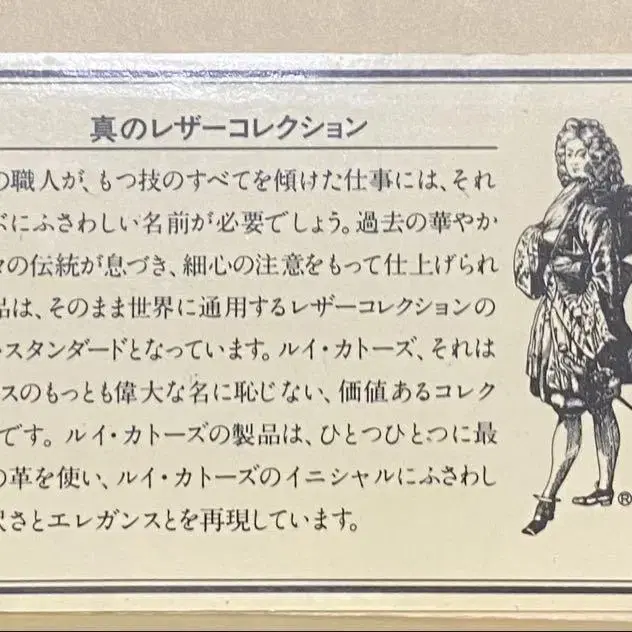 真のレザーコレクション
の職人が、もつ技のすべてを傾けた仕事には、それ
にふさわしい名前が必要でしょう。過去の華やか
の伝統が息づき、細心の注意をもって仕上げられ
品は、そのまま世界に通用するレザーコレクションの
スタンダードとなっています。ルイ・カトーズ、それは
スのもっとも偉大な名に恥じない、価値あるコレク
です。ルイ・カトーズの製品は、ひとつひとつに最
の革を使い、ルイ・カトーズのイニシャルにふさわし
さとエレガンスとを再現しています。
®